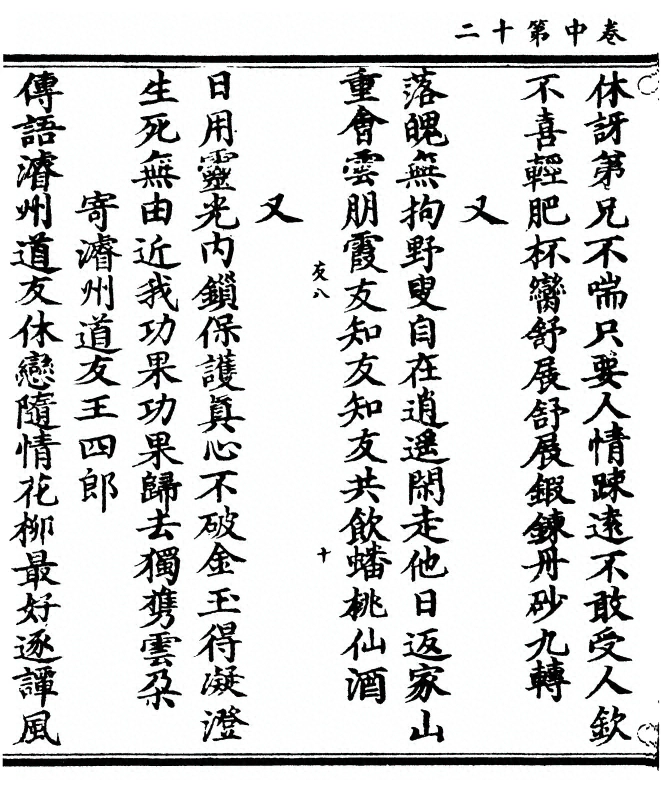 卷中第十二
休訝第兄不喘只要人情踈遠不敢受人欽
不喜輕肥杯臠舒展舒展鍜鍊丹砂九轉
又
落魄無拘野叟自在逍遥閑走他日返家山
重會雲朋霞友知友知友共飲蟠桃仙酒
友八
十
又
日用靈光内鎖保護眞心不破金玉得凝澄
生死無由近我功果功果歸去獨携雲朶
寄濬州道友王四郎
傳語濬州道友休戀隨情花柳最好逐譚風